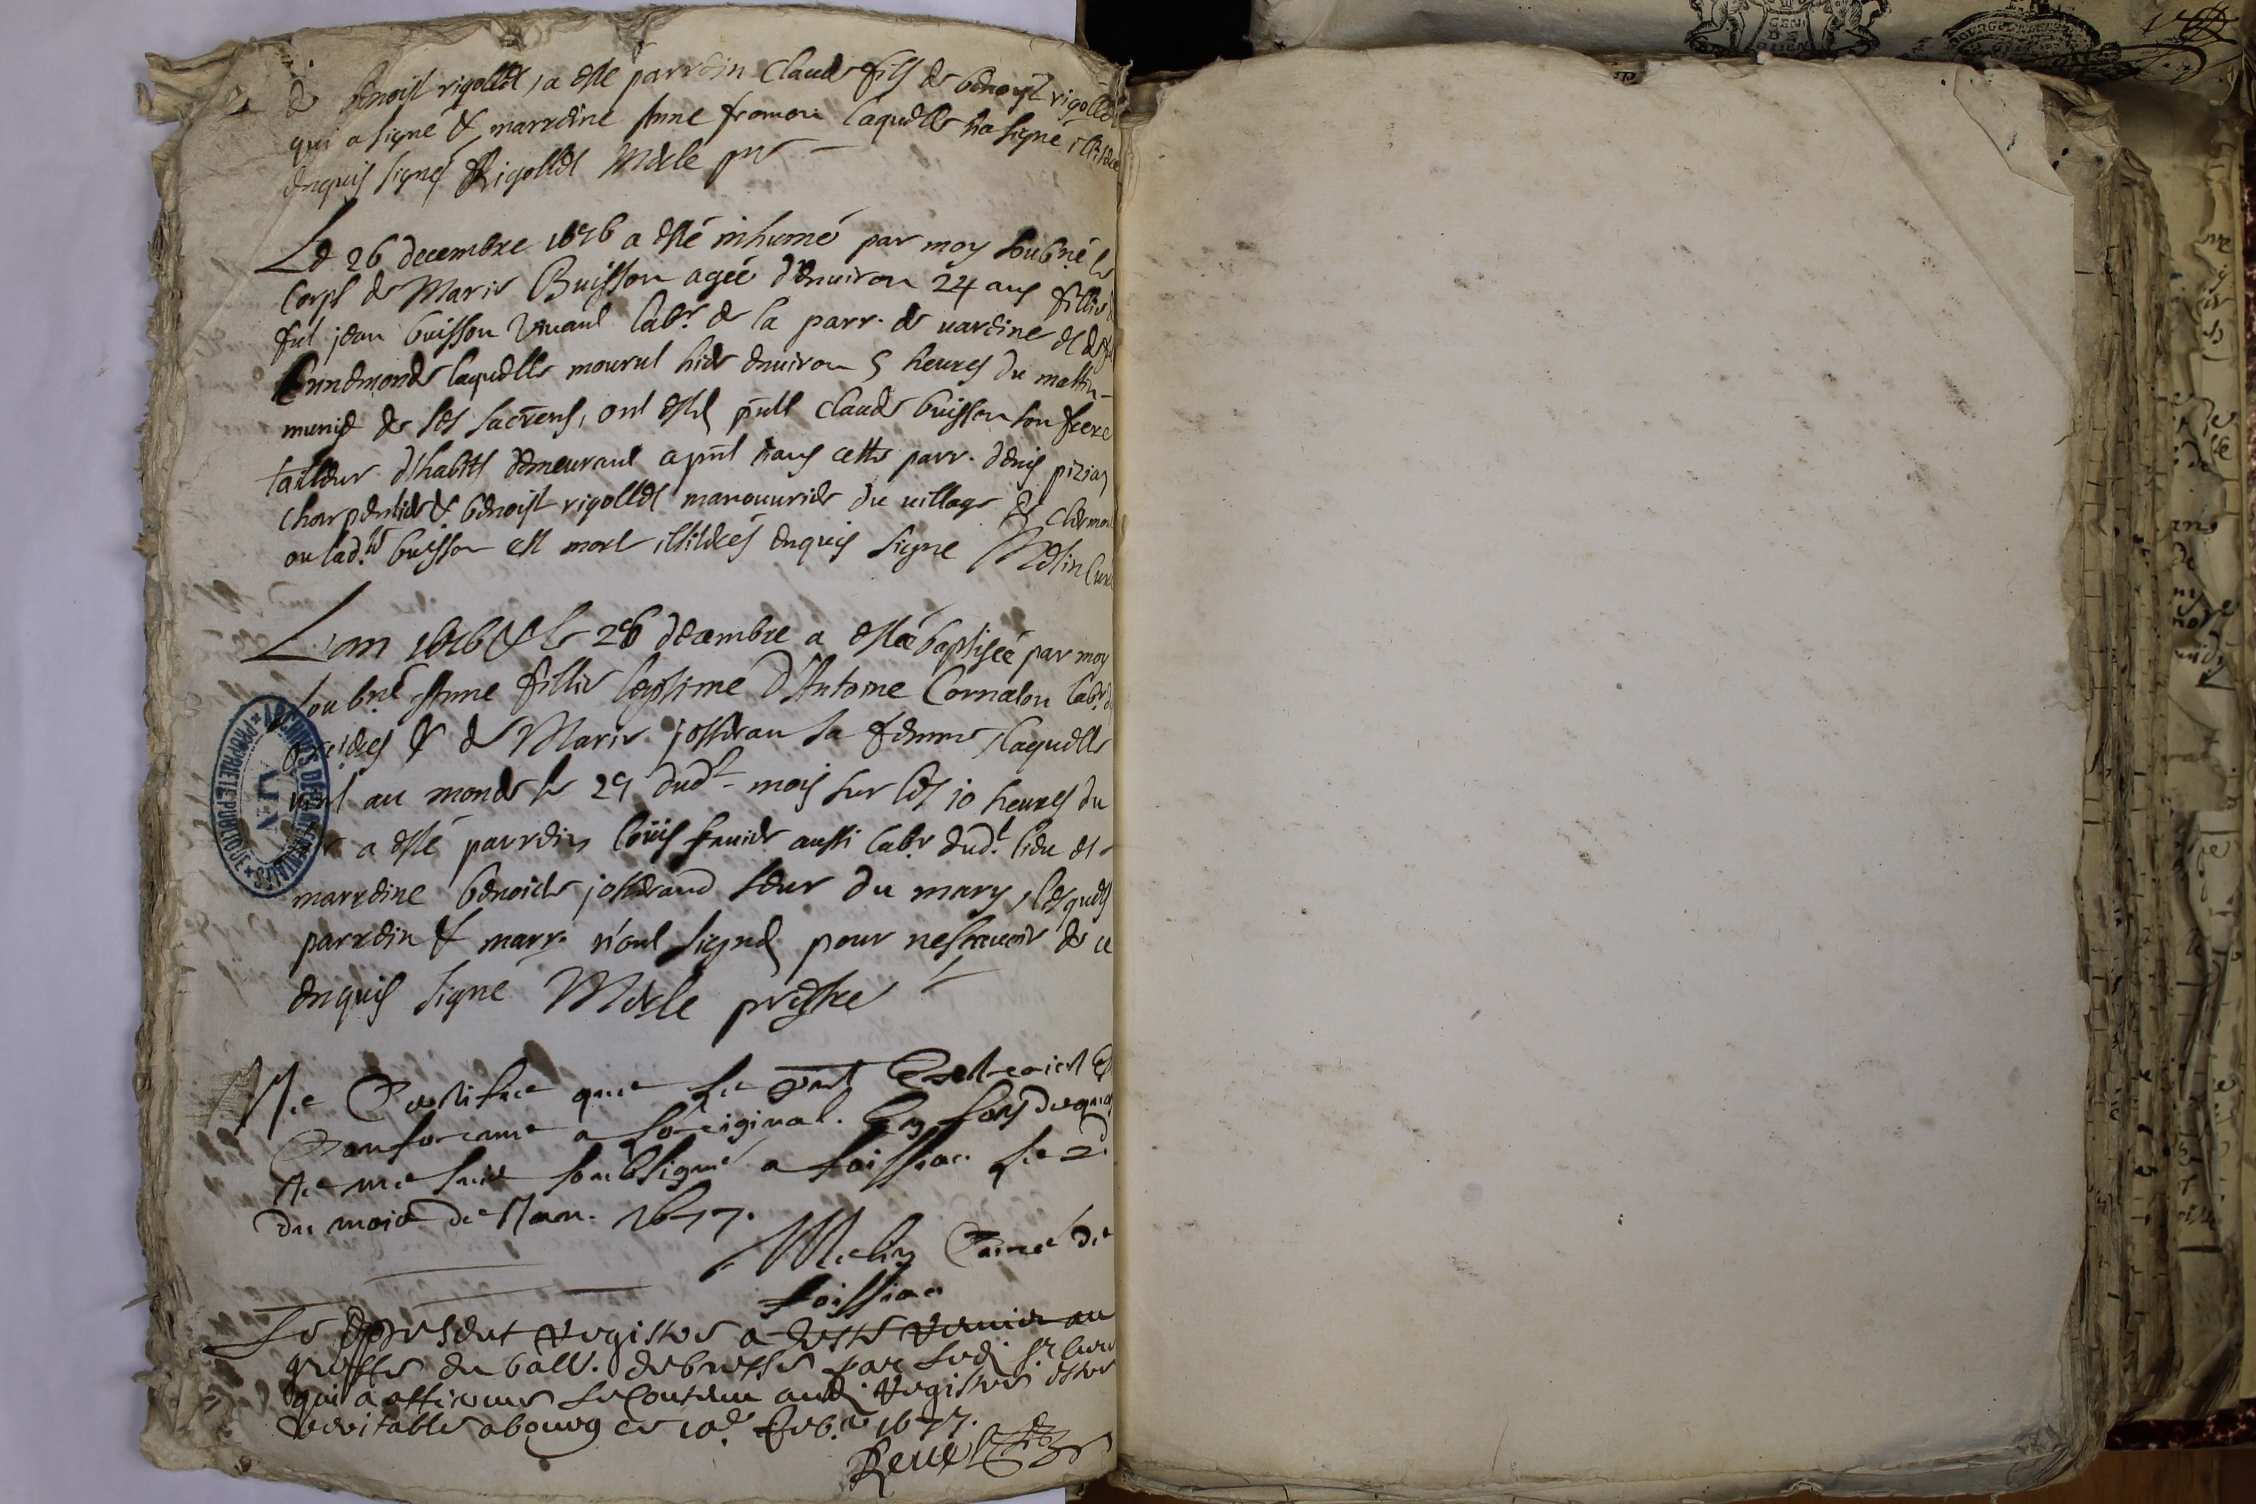 de benoist rigollet, a esté parrein Claude fils de benoist rigollet
qui a signé & marreine Anne fromon laquelle n'a signé illiterée
enquis signé Rigollet Merle pre
Le 26 decembre 1676 a esté inhumé par moy soubné le
corps de Marie Buisson agée d'enuiron 24 ans fillie
fut jean buisson viuant labr. de la parr. de
laquelle mourut hier enuiron 5 heures du mattin
munie de ses sacrens, ont estés pnts claude buisson son frere
tailleur d'habits demeurant a pnt dans cette parr. denis pizian
charpentier & benoist rigollet manouurier du village de clermon
ou lad.te buisson est mort illiterés enquis signe Melin Curé
L'an 1676 & le 26 decembre a estée baptisée par moy
soubné Anne fillie legitime d'Antoine Cornalon labr.
& de Marie josseran sa femme, laquelle
vint au monde le 25 dud.t mois sur les 10 heures du
a esté parrein loüis aussi labr. dud.t lieu et
marreine benoicte josserand seur du mary, lesquels
parrein & marr. n'ont signé pour ne sçauoir de ce
enquis signé Merle prestre
Je Certifie que le pnt Extraict est
Conforme a l'original. En foy dequoy
Je me suis soubsigné a foissia le 2
du mois de Jan. 1677.
Melin Curé de
foissia
Le present registre a esté remis au
greffe du ball. de bresse par led. sr. Curé
qui a affirmé le Contenu aud. registre estre
veritable a bourg ce 10e feb. 1677.
Reuel
ARCHIVES DÉPARTEMENTALES
AIN
PROPRIÉTÉ PUBLIQUE
GEN